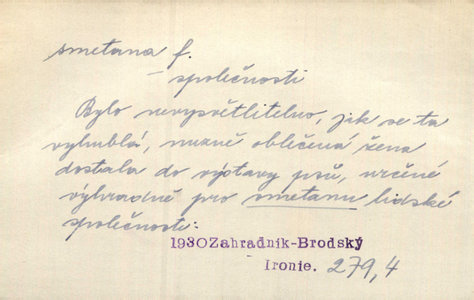 smetana f.
– společnosti
Bylo nevysvětlitelno, jak se ta
vyhublá, nuzně oblečená žena
dostala do výstavy psů, určené
výhradně pro smetanu lidské
společnosti:
1930Zahradník-Brodský
Ironie. 279,4